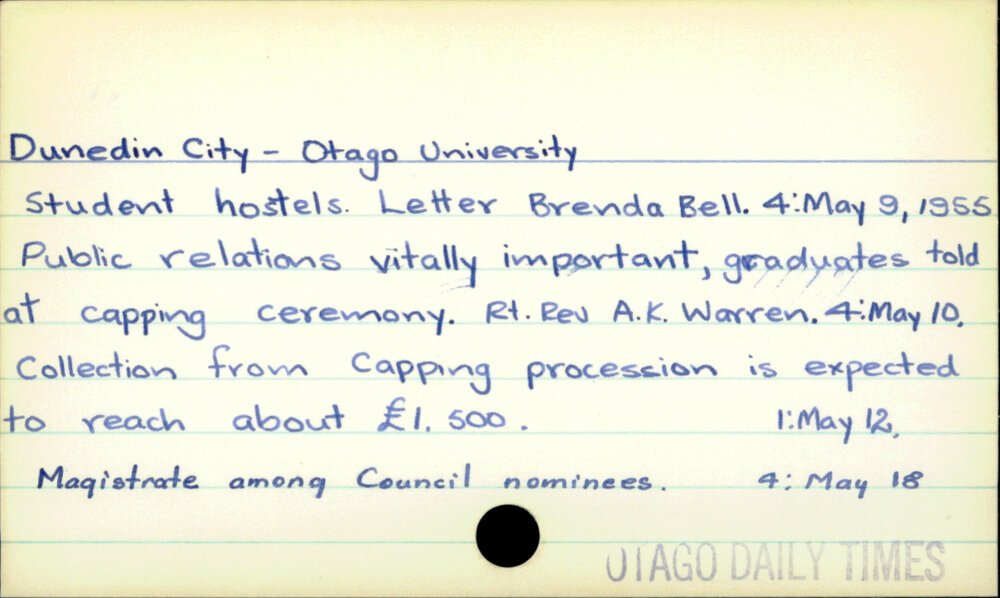 Dunedin City - Otago University
Student hostels. Letter Brenda Bell. 4:May 9, 1955
Public relations vitally important, graduates told
at capping ceremony. Rt. Rev A.K. Warren. 4:May 10.
Collection from Capping procession is expected
to reach about £1.500. 1:May 12.
Magistrate among Council nominees. 4: May 18
OTAGO DAILY TIMES